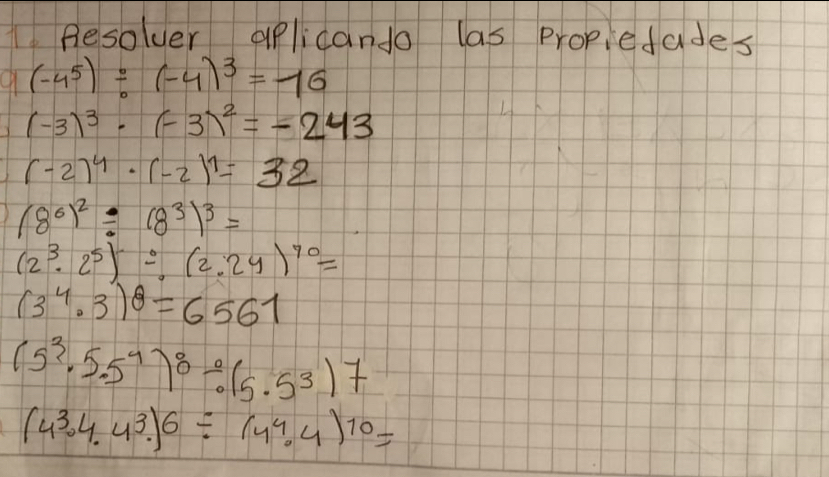 1. Resolver aplicando las Propiedades
a (-4⁵) ÷ (-4)³ = -16
(-3)³ · (-3)² = -243
(-2)⁴ · (-2)¹= 32
(8⁶)² ÷ (8³)³ =
(2³. 2⁵) ÷ (2.24)¹⁰=
(3⁴.3)⁸=6561
(5³.5.5⁴)⁸ ÷ (5.5³)7
(4³.4.4³.)6 ÷ (4⁴.4)¹⁰=